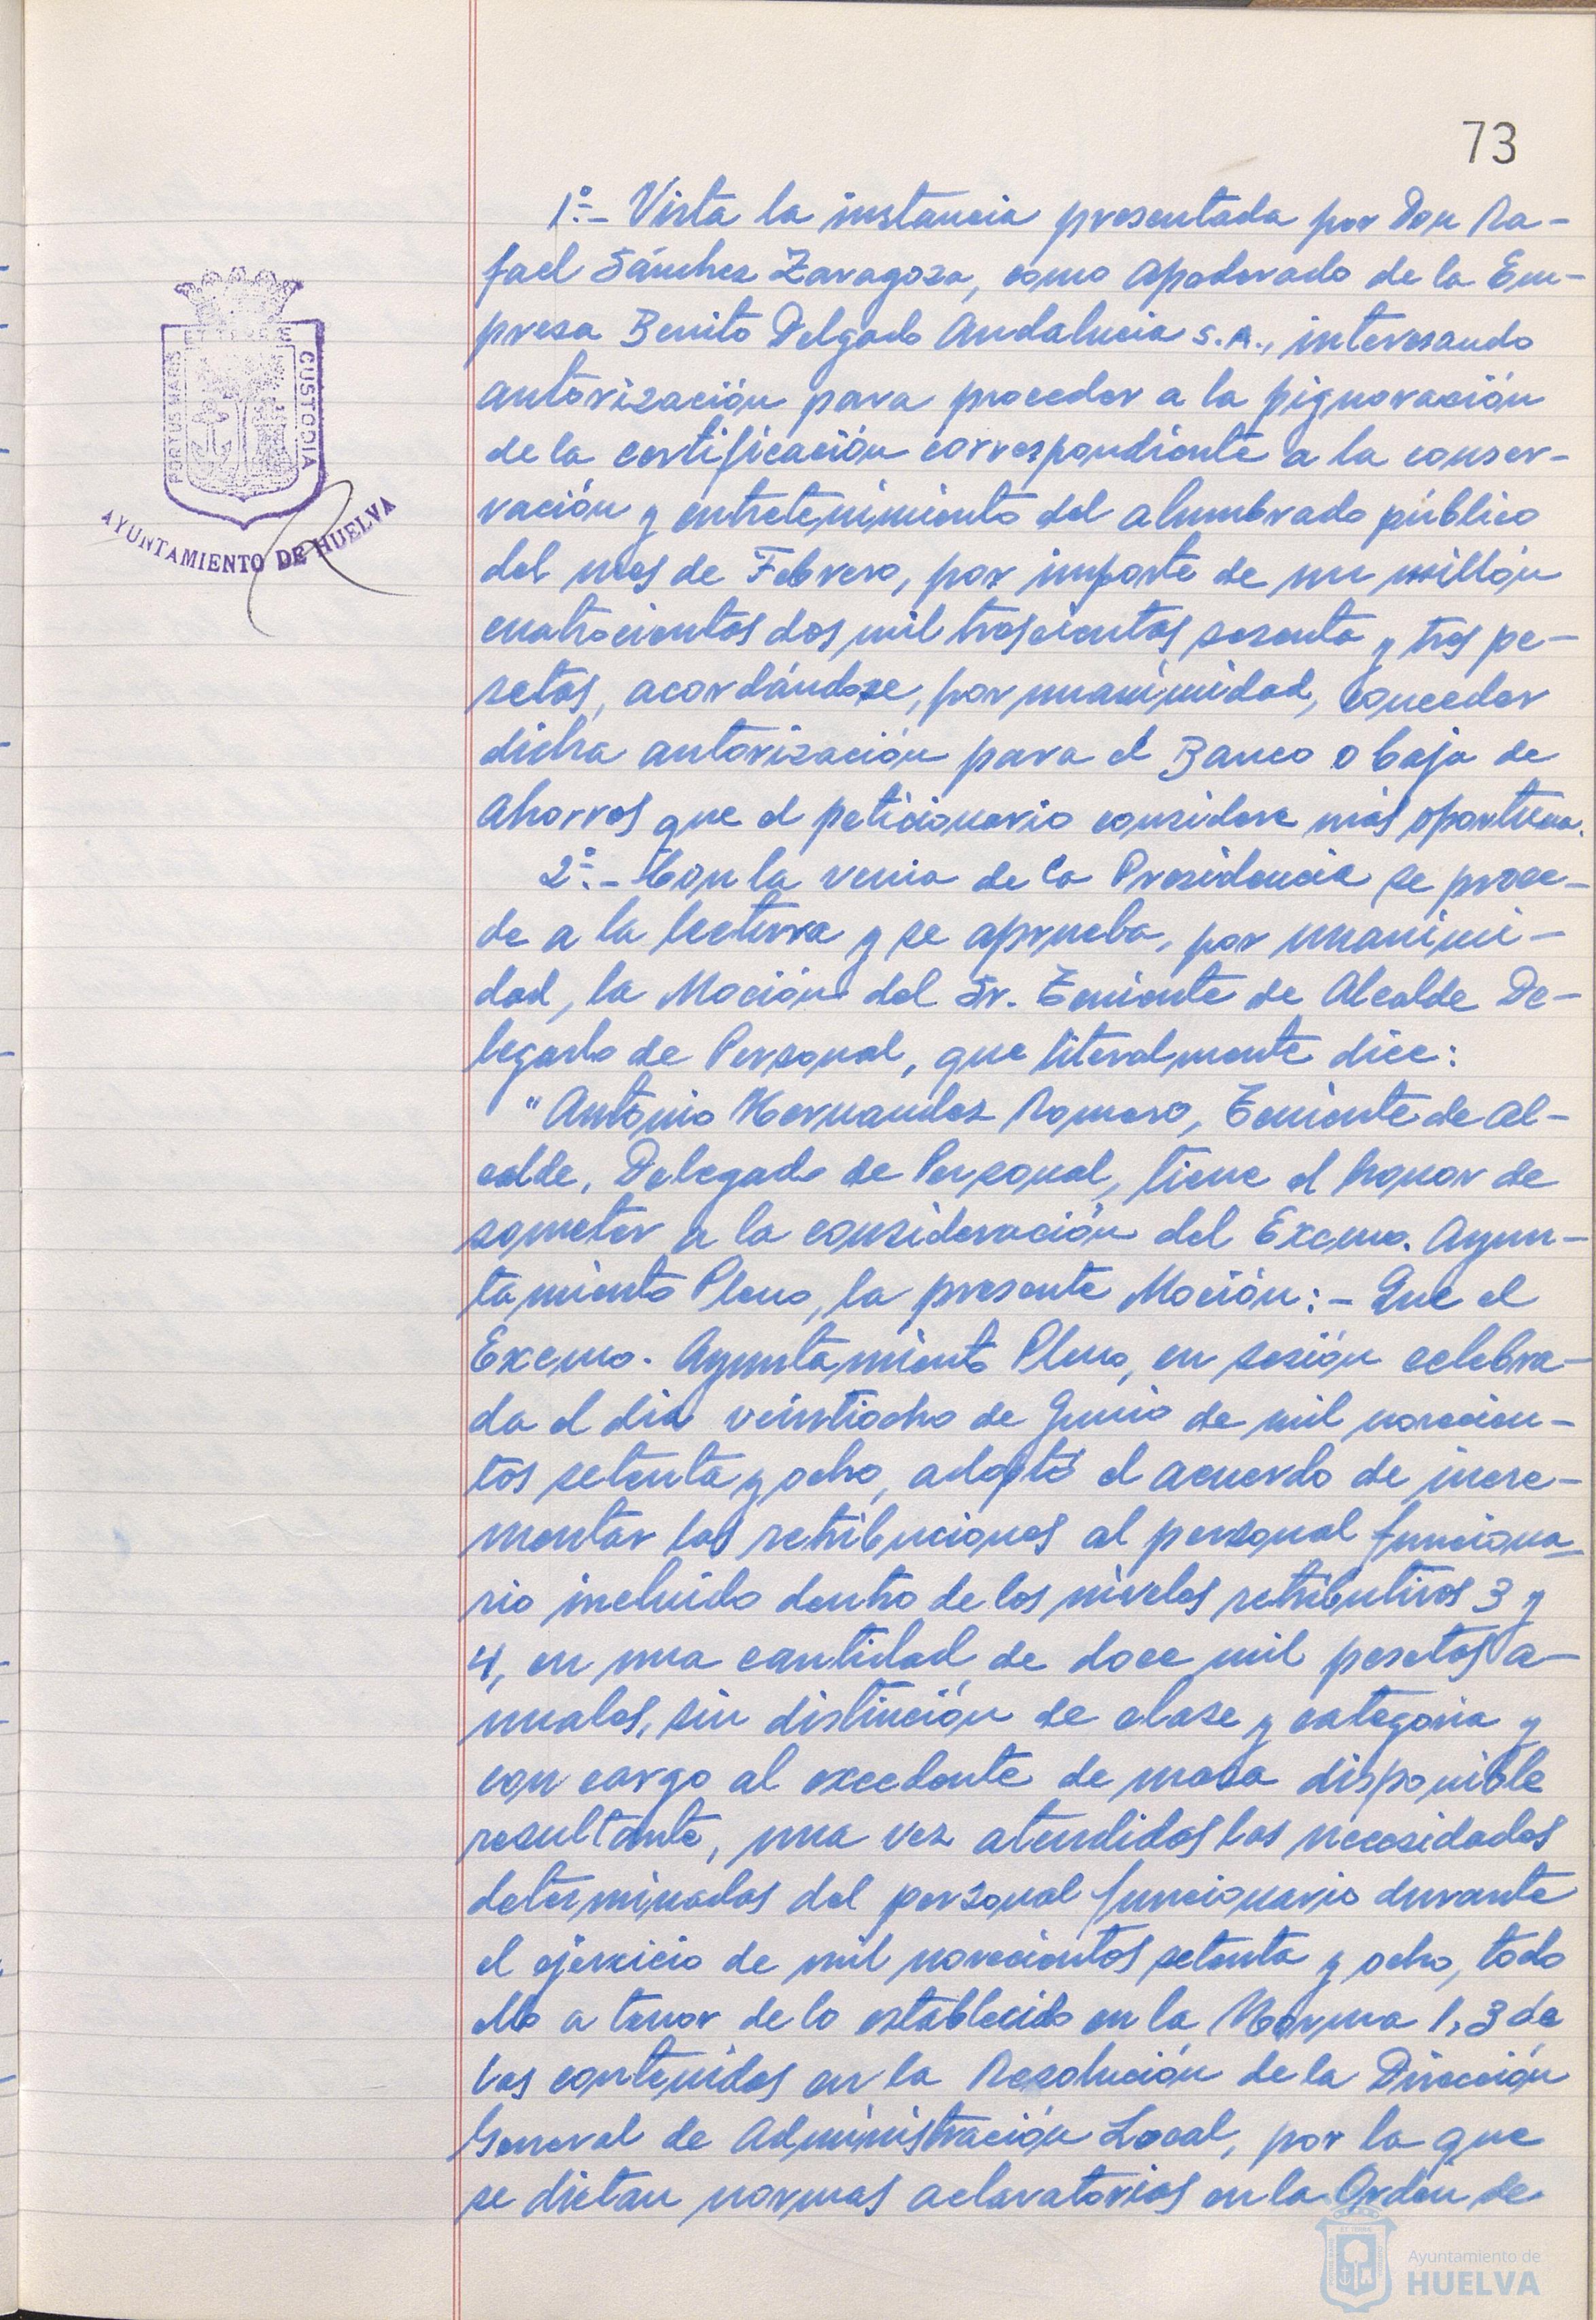 73
1º.- Vista la instancia presentada por Don Ra-
fael Sánchez Zaragoza, como apoderado de la Em-
presa Benito Delgado Andalucia S.A., interesando
autorización para proceder a la pignoración
de la certificación correspondiente a la conser-
vación y entretenimiento del alumbrado público
del mes de Febrero, por importe de un millón
cuatrocientas dos mil trescientas sesenta y tres pe-
setas, acordándose, por unanimidad, conceder
dicha autorización para el Banco o Caja de
Ahorros que el peticionario considere más oportuna.
2º.- Con la venia de la Presidencia se proce-
de a la lectura y se aprueba, por unanimi-
dad, la Moción del Sr. Teniente de Alcalde De-
legado de Personal, que literalmente dice:
"Antonio Hernandez Romero, Teniente de Al-
calde, Delegado de Personal, tiene el honor de
someter a la consideración del Excmo. Ayun-
tamiento Pleno, la presente Moción: - Que el
Excmo. Ayuntamiento Pleno, en sesión celebra-
da el dia veintiocho de Junio de mil novecien-
tos setenta y ocho, adoptó el acuerdo de incre-
mentar las retribuciones al personal funciona-
rio incluido dentro de los niveles retributivos 3 y
4, en una cantidad de doce mil pesetas a-
nuales, sin distinción de clase y categoria y
con cargo al excedente de masa disponible
resultante, una vez atendidas las necesidades
determinadas del personal funcionario durante
el ejercicio de mil novecientos setenta y ocho, todo
ello a tenor de lo establecido en la Norma 1,3 de
las contenidas en la Resolución de la Dirección
General de Administración Local, por la que
se dictan normas aclaratorias en la Orden de
PORTUS MARIS
ET TERRE
CUSTODIA
AYUNTAMIENTO DE HUELVA
Ayuntamiento de
HUELVA